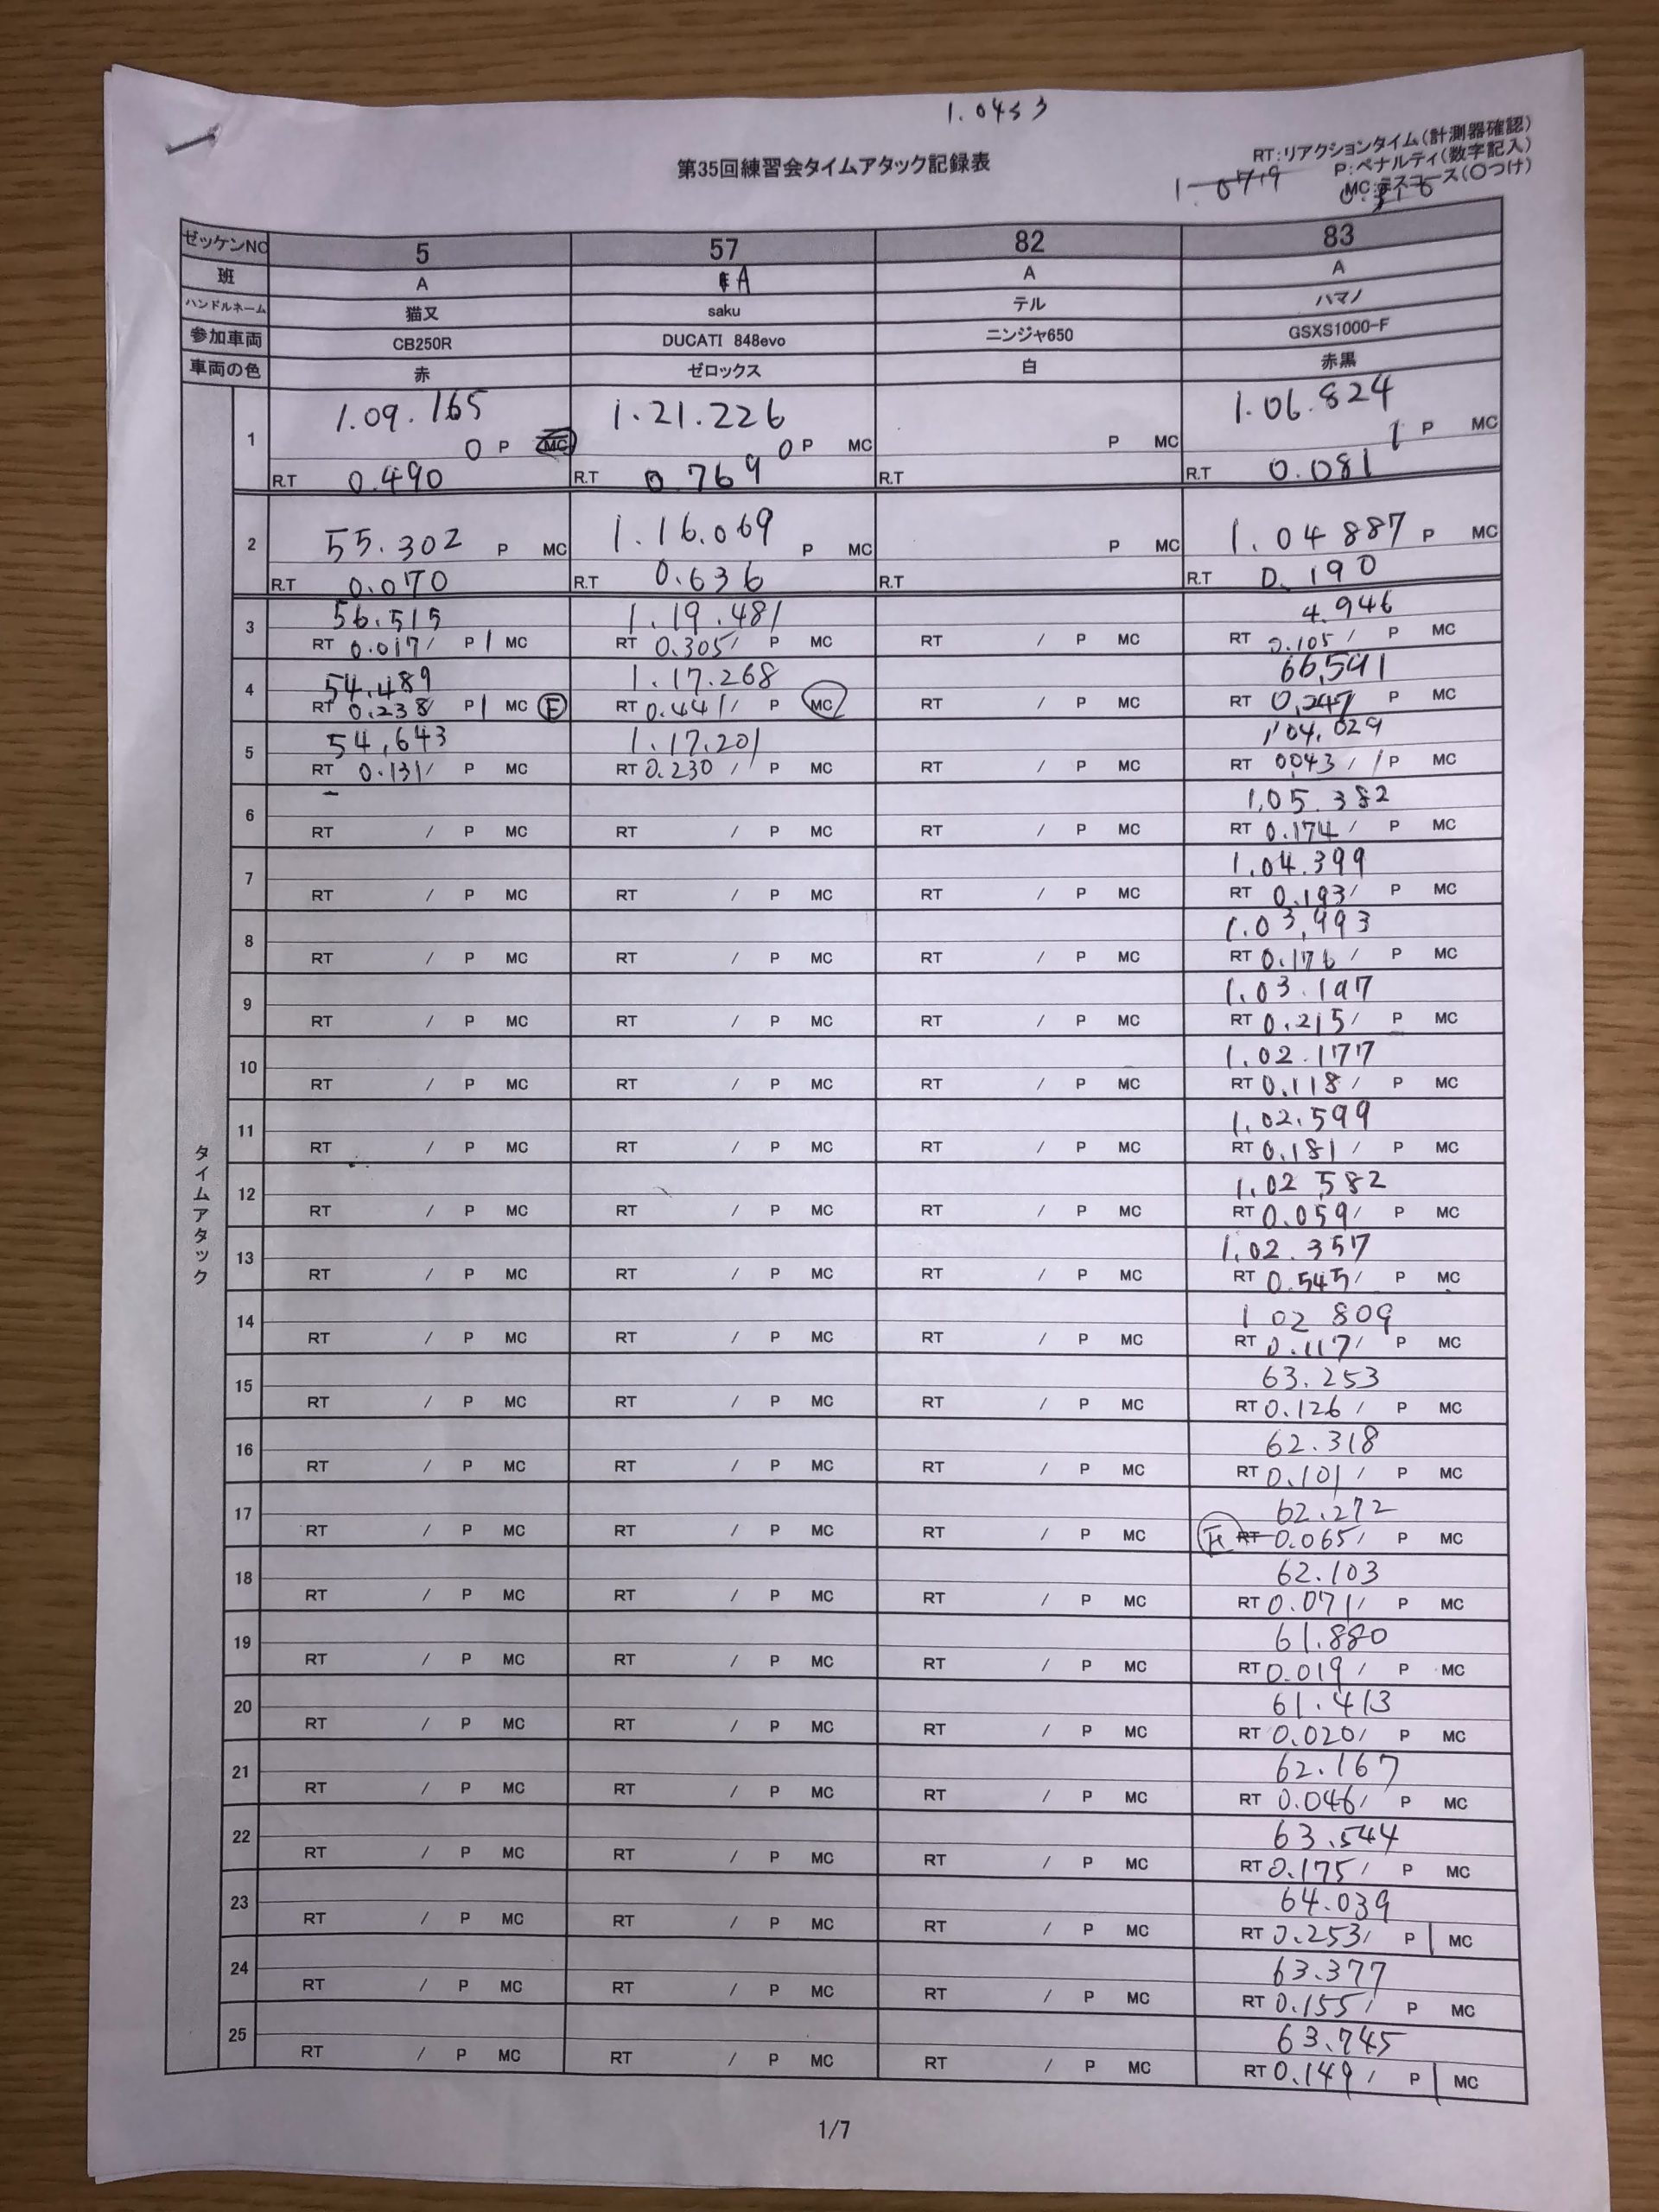 1.0453
第35回練習会タイムアタック記録表
RT:リアクションタイム(計測器確認)
P:ペナルティ(数字記入)
MC:ミスコース(〇つけ)
ゼッケンNO 5 57 82 83
班 A A A A
ハンドルネーム 猫又 saku テル ハマノ
参加車両 CB250R DUCATI 848evo ニンジャ650 GSXS1000-F
車両の色 赤 ゼロックス 白 赤黒
タイムアタック
1 1.09.165 1.21.226 1.06.824
0 P MC 0 P MC P MC 1 P MC
R.T 0.490 R.T 0.769 R.T R.T 0.081
2 55.302 P MC 1.16.069 P MC P MC 1.04 887 P MC
R.T 0.070 R.T 0.636 R.T R.T 0.190
3 56.515 1.19.481 4.946
RT 0.017/ P 1 MC RT 0.305/ P MC RT / P MC RT 0.105/ P MC
4 54.489 1.17.268 66,541
RT 0.238/ P 1 MC F RT 0.441/ P MC RT / P MC RT 0.247/ P MC
5 54,643 1.17.201 1,04.029
RT 0.131/ P MC RT 0.230 / P MC RT / P MC RT 0.043 / 1 P MC
6 1,05.382
RT / P MC RT / P MC RT / P MC RT 0.174/ P MC
7 1.04.399
RT / P MC RT / P MC RT / P MC RT 0.193/ P MC
8 1.03,993
RT / P MC RT / P MC RT / P MC RT 0.176 / P MC
9 1.03.197
RT / P MC RT / P MC RT / P MC RT 0.215/ P MC
10 1.02.177
RT / P MC RT / P MC RT / P MC RT 0.118/ P MC
11 1.02.599
RT / P MC RT / P MC RT / P MC RT 0.181 / P MC
12 1.02 582
RT / P MC RT / P MC RT / P MC RT 0.059/ P MC
13 1.02.357
RT / P MC RT / P MC RT / P MC RT 0.545/ P MC
14 1 02 809
RT / P MC RT / P MC RT / P MC RT 0.117/ P MC
15 63.253
RT / P MC RT / P MC RT / P MC RT 0.126 / P MC
16 62.318
RT / P MC RT / P MC RT / P MC RT 0.101/ P MC
17 62.272
RT / P MC RT / P MC RT / P MC F RT 0.065/ P MC
18 62.103
RT / P MC RT / P MC RT / P MC RT 0.071/ P MC
19 61.880
RT / P MC RT / P MC RT / P MC RT 0.019 / P MC
20 61.413
RT / P MC RT / P MC RT / P MC RT 0.020/ P MC
21 62.167
RT / P MC RT / P MC RT / P MC RT 0.046/ P MC
22 63.544
RT / P MC RT / P MC RT / P MC RT 0.175/ P MC
23 64.039
RT / P MC RT / P MC RT / P MC RT 0.253/ P 1 MC
24 63.377
RT / P MC RT / P MC RT / P MC RT 0.155/ P MC
25 63.745
RT / P MC RT / P MC RT / P MC RT 0.149/ P 1 MC
1/7